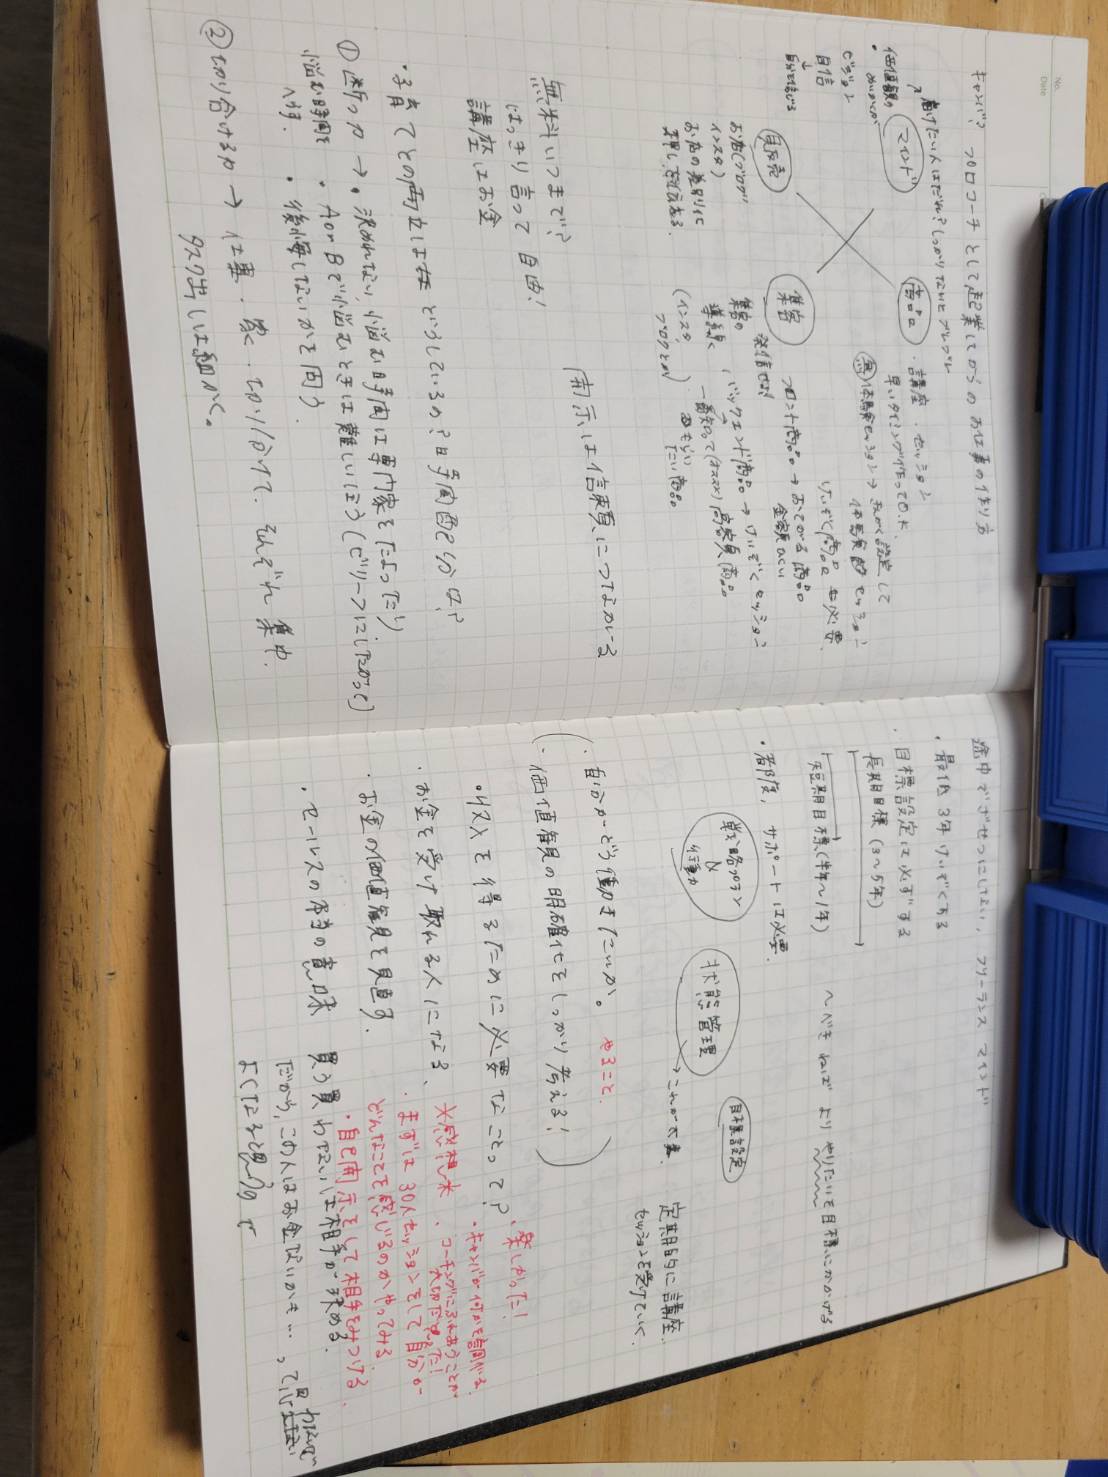 キャンパ? プロコーチとして起業してからのお仕事の作り方
届けたい人はだれ?しっかりないとブレブレ
マインド
価値観の
めいかくか
ビジョン
自信
↓
自分を信じる
商品
・講座・セッション
早いタイミングで作ってO.K.
無 体験セッション→
体験 セッション
けいぞく商品も必要
販売
お店(ブログ
インスタ)
お店の差別化
集客
発信せよ
フロント商品→おてがる商品
金額ひくい
バックエンド商品→けいぞくセッション
高額商品
一番知って
もらい
たい商品
集客の
導線
(インスタ
ブログとか)
無料いつまで?
はっきり言って自由!
講座はお金
開示は信頼につながる
・子育てとの両立は どうしているの?時間配分は?
① 断つ力→・決めれない、悩む時間は専門家をたよったり
悩む時間を
へらす。
・A or Bで悩むときは難しいほう(ビリーフにしたがって)
・後悔しないかを問う
② 切り合ける力→仕事・家・切り分けて、それぞれ集中。
タスク出しは細かく。
途中でざせつにしない、フリーランスマインド
・最低3年けいぞくする
・目標設定は必ずする
長期目標(3〜5年)
短期目標(半年〜1年)
〜べき ねば より やりたいを目標にかかげる
・都度、サポートは必要。
戦略プラン
&
行動
状態管理
→これが大事。
目標設定
定期的に講座、
セッションを受けていく。
・自分がどう働きたいか。 やること。
・価値観の明確化をしっかり考える!
・リストを得るために必要なことって?
・お金を受け取れる人になる、
・お金の価値観を見直す。
・セールスの本当の意味
買う買わないは相手が決める。
だから、この人はお金ないかも… って思わない
よくなると思うな
・楽しかった!
・キャンパが何かを言っている。
※感想※
・コーチングにふれあうことが
大切だと思った!
・まずは30人セッションをして自分が
どんなことを感じるのかやってみる
・自己開示をして相手をみつける